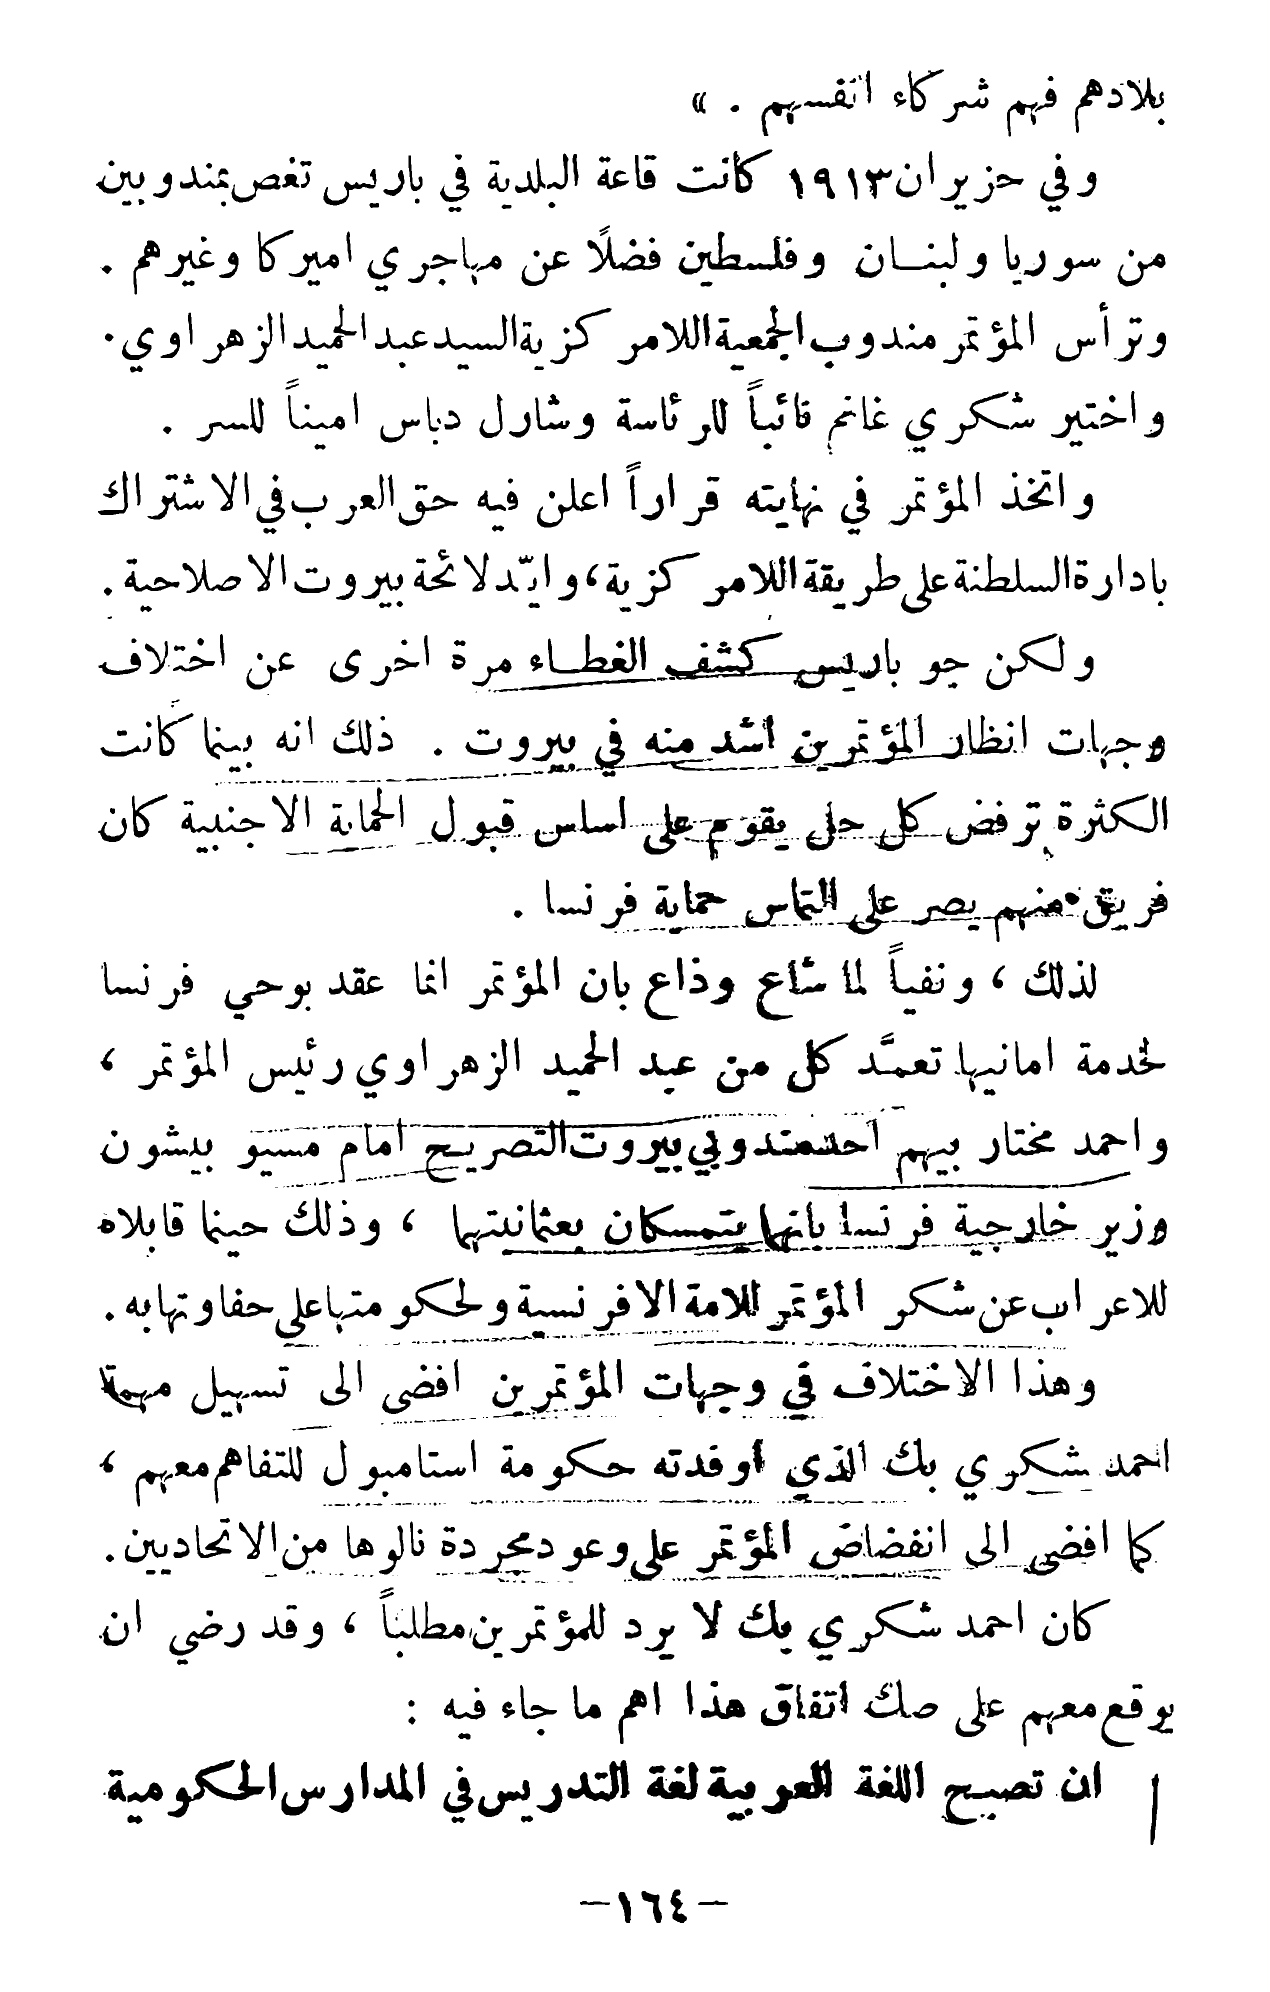 بلادهم فهم شركاء انفسهم . »
وفي حزيران ١٩١٣ كانت قاعة البلدية في باريس تغص بمندوبين
من سوريا ولبنان وفلسطين فضلًا عن مهاجري اميركا وغيرهم .
وترأس المؤتمر مندوب الجمعية اللامركزية السيد عبد الحميد الزهراوي .
واختير شكري غانم نائباً للرئاسة وشارل دباس اميناً للسر .
واتخذ المؤتمر في نهايته قراراً اعلن فيه حق العرب في الاشتراك
بادارة السلطنة على طريقة اللامركزية ، وايّد لائحة بيروت الاصلاحية .
ولكن جو باريس كشف الغطاء مرة اخرى عن اختلاف
وجهات انظار المؤتمرين اشد منه في بيروت . ذلك انه بينما كانت
الكثرة ترفض كل حل يقوم على اساس قبول الحماية الاجنبية كان
فريق منهم يصر على التماس حماية فرنسا .
لذلك ، ونفياً لما شاع وذاع بان المؤتمر انما عقد بوحي فرنسا
لخدمة امانيها تعمَّد كل من عبد الحميد الزهراوي رئيس المؤتمر ،
واحمد مختار بيهم احد مندوبي بيروت التصريح امام مسيو بيشون
وزير خارجية فرنسا بانهما يتمسكان بعثمانيتهما ، وذلك حينما قابلاه
للاعراب عن شكر المؤتمر للامة الافرنسية ولحكومتها على حفاوتها به .
وهذا الاختلاف في وجهات المؤتمرين افضى الى تسهيل مهمة
احمد شكري بك الذي اوفدته حكومة استامبول للتفاهم معهم ،
كما افضى الى انفضاض المؤتمر على وعود مجردة نالوها من الاتحاديين .
كان احمد شكري بك لا يرد للمؤتمرين مطلباً ، وقد رضي ان
يوقع معهم على صك اتفاق هذا اهم ما جاء فيه :
ان تصبح اللغة العربية لغة التدريس في المدارس الحكومية
– ١٦٤ –